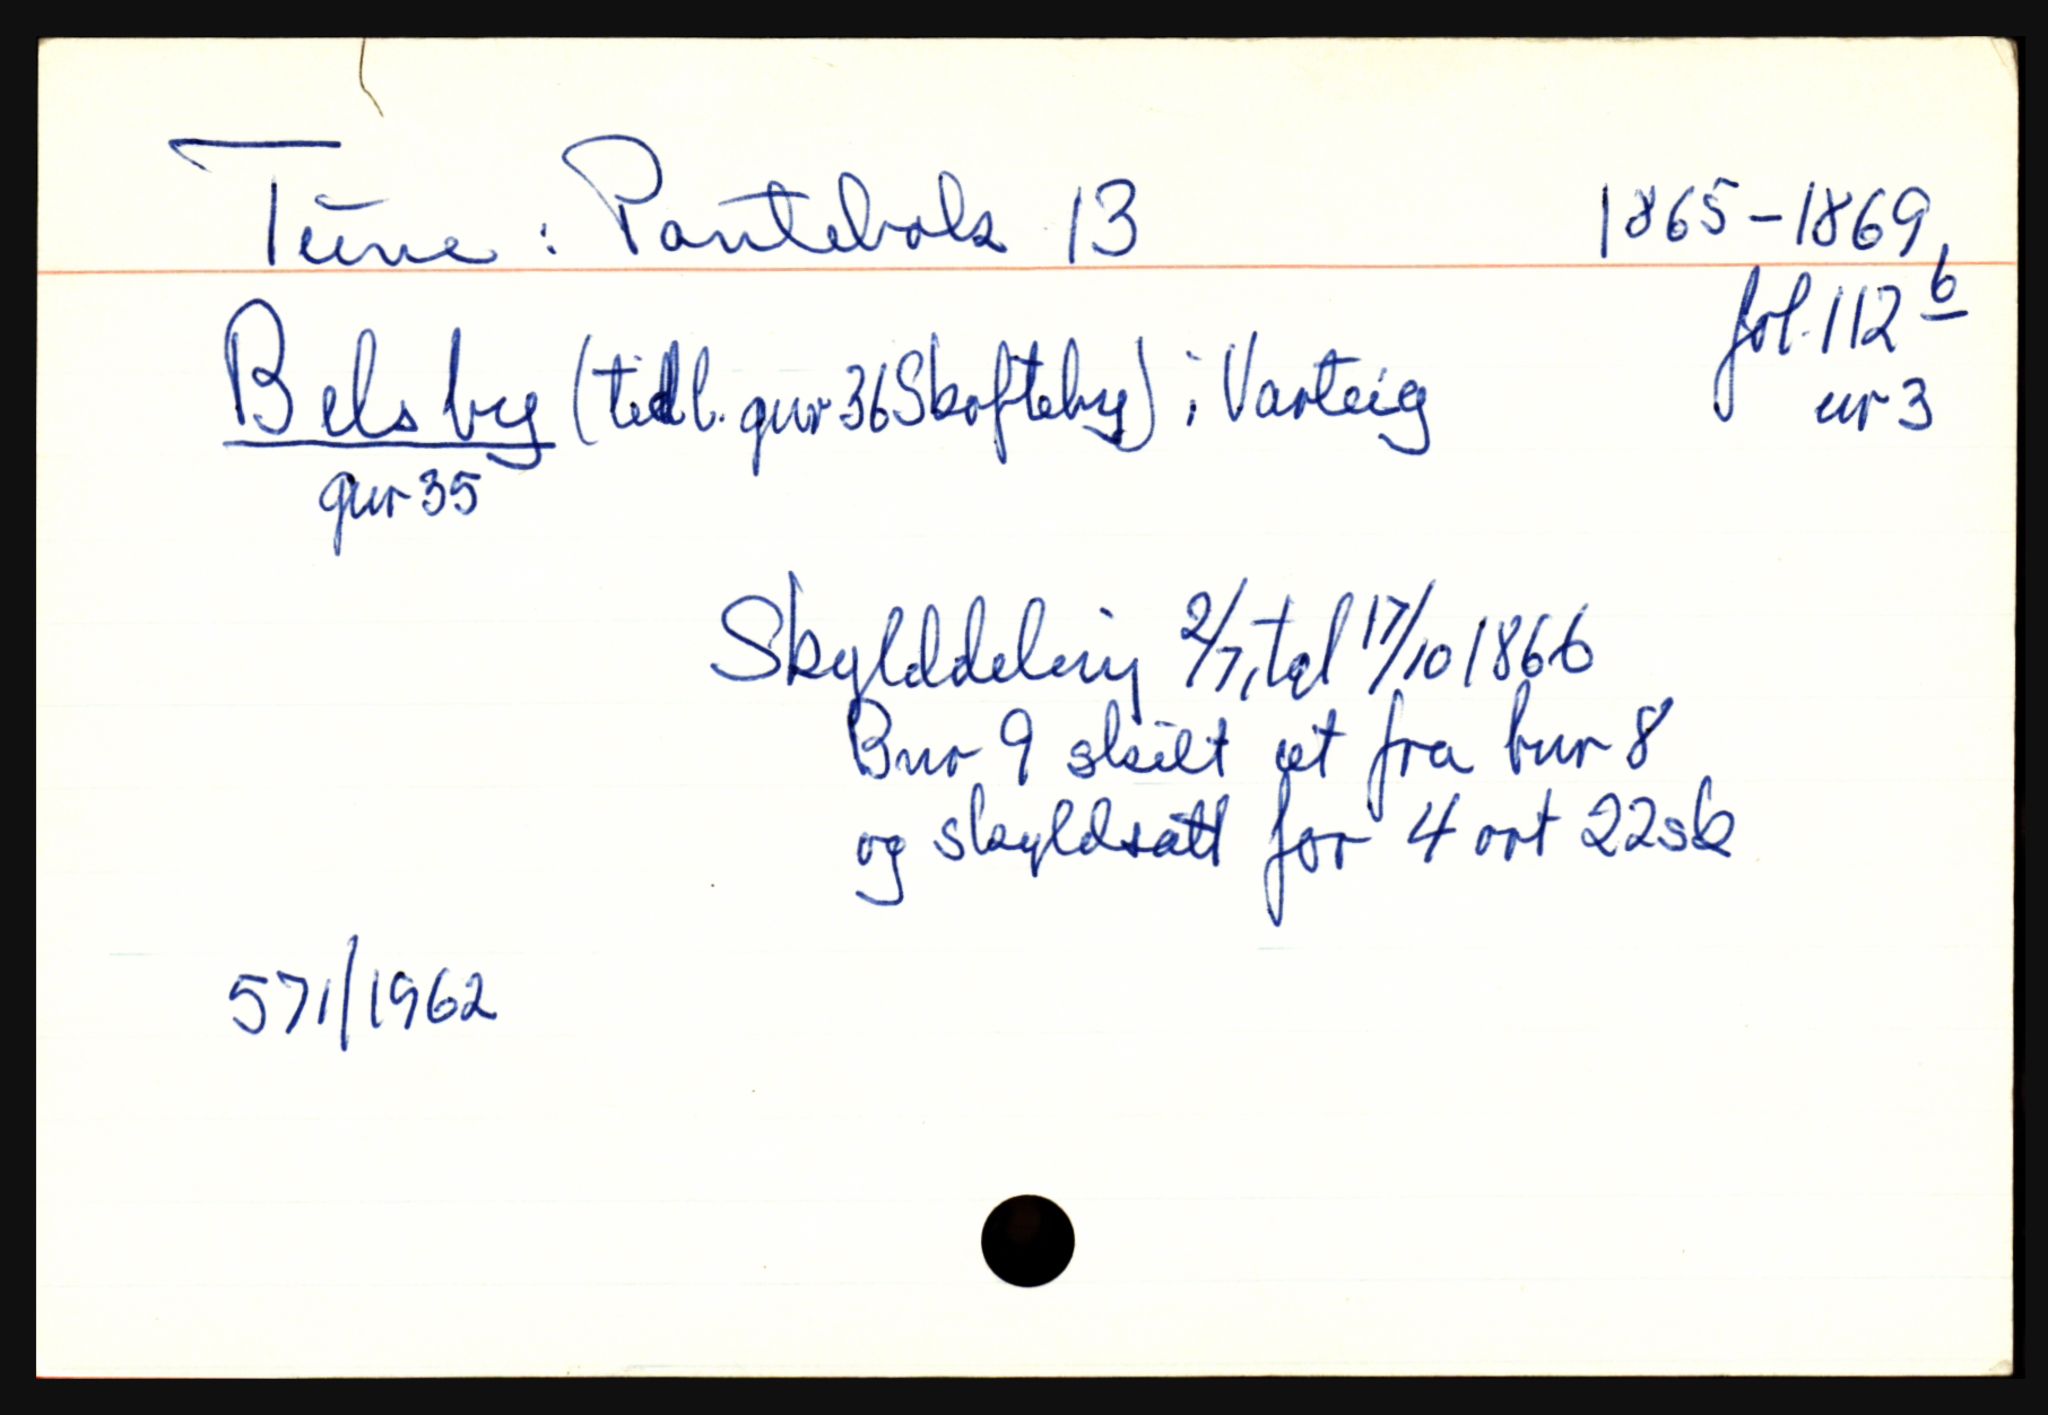 Tune : Pantebok 13 1865-1869,
fol. 112 b
Belsby (tidl. gnr 36 Skofteby) i Varteig
nr 3
gnr 35
Skylddeling 2/7, tgl 17/10 1866
Bnr 9 skilt ut fra bnr 8
og skyldsatt for 4 ort 22 sk
571/1962